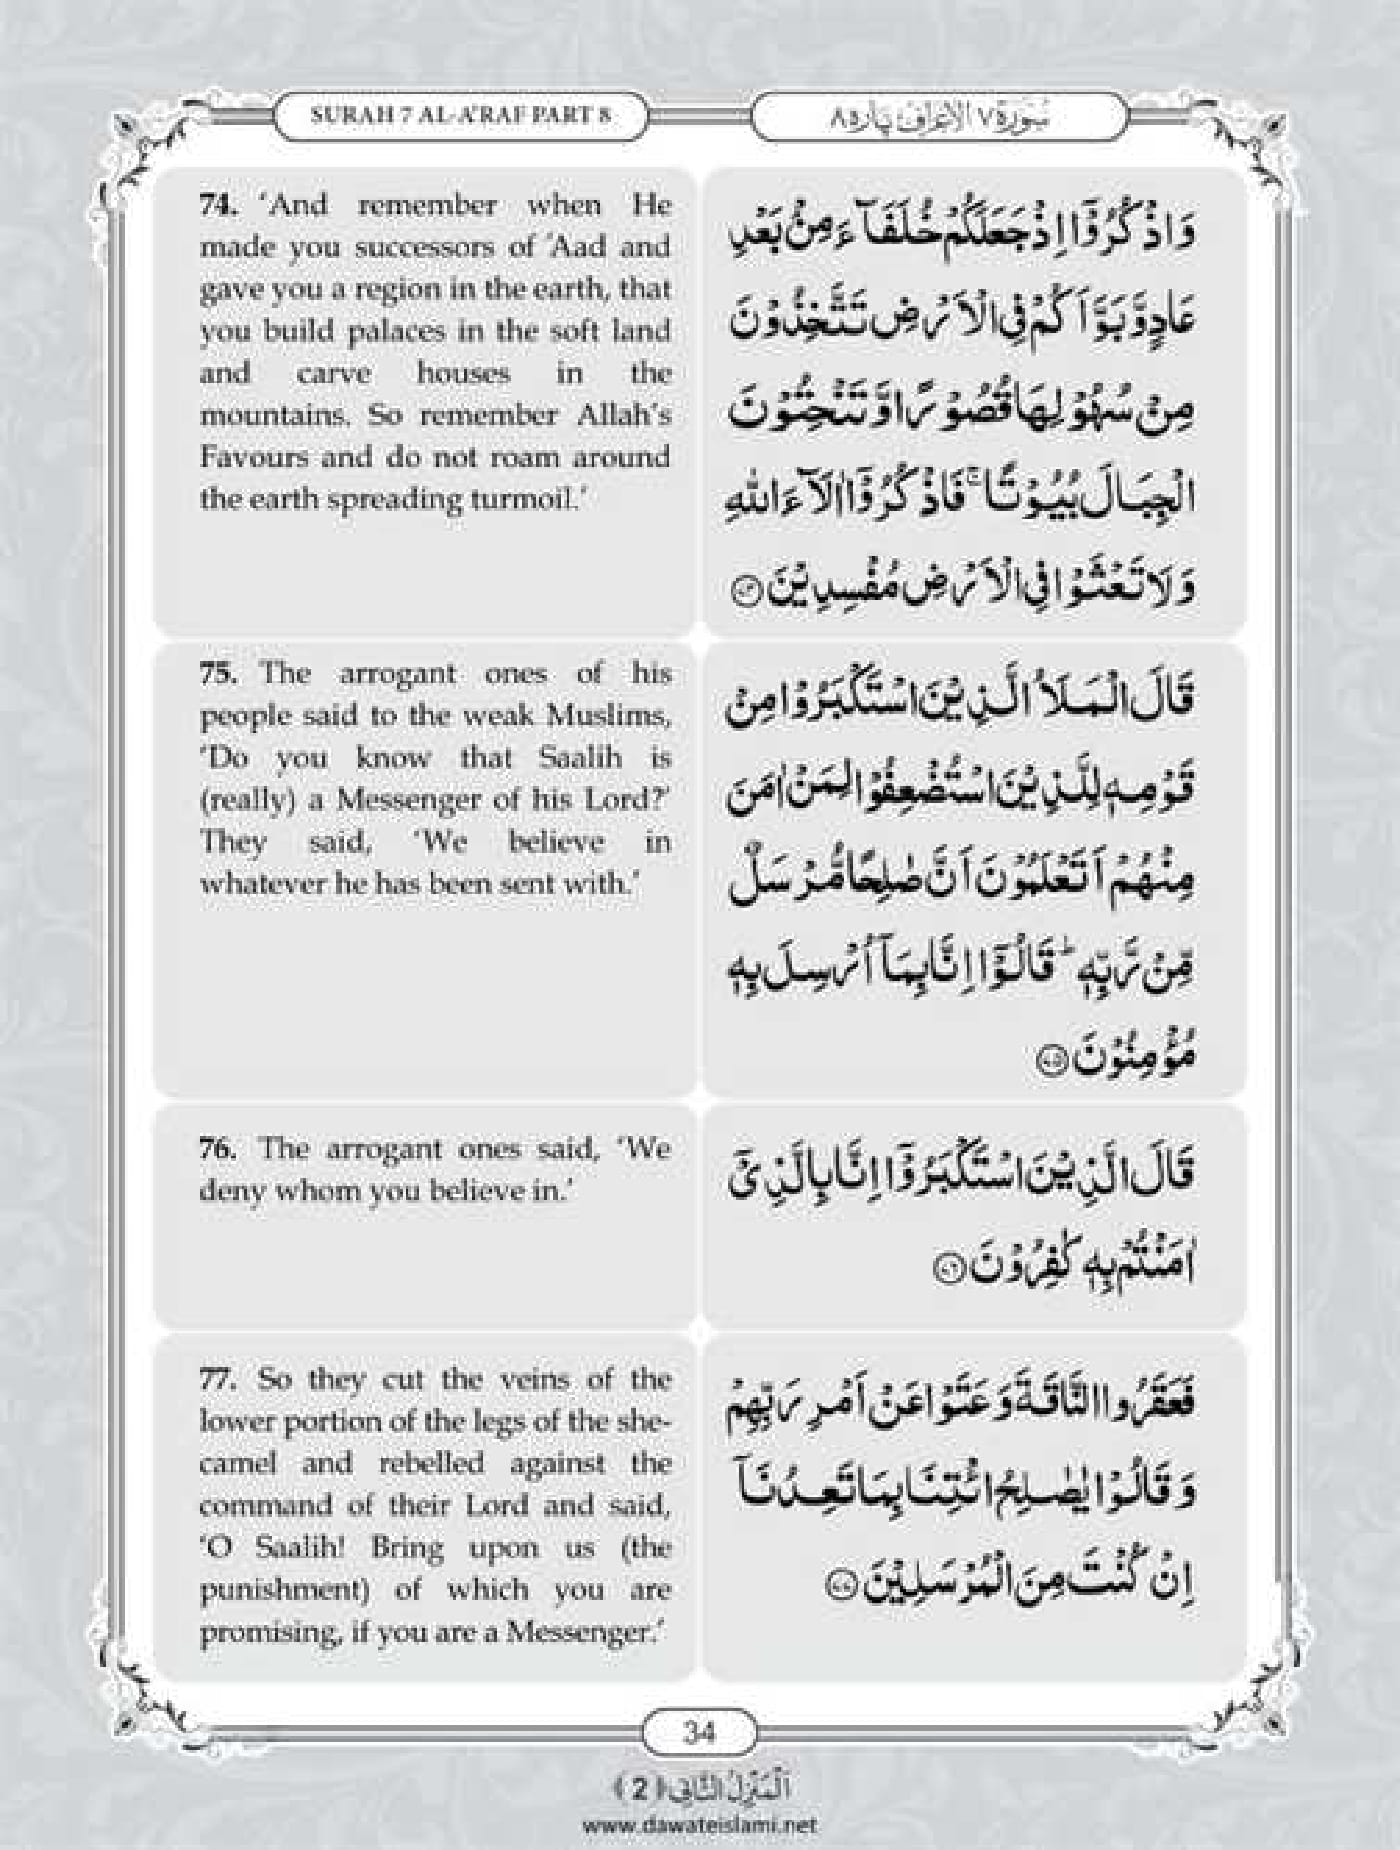 SURAH 7 AL-A'RAF PART 8
سُوۡرَۃ ٧ الۡاَعۡرَاف پَارَہ ٨
74. ‘And remember when He
made you successors of ‘Aad and
gave you a region in the earth, that
you build palaces in the soft land
and carve houses in the
mountains. So remember Allah’s
Favours and do not roam around
the earth spreading turmoil.’
وَاذْكُرُوْۤا اِذْ جَعَلَكُمْ خُلَفَآءَ مِنْۢ بَعْدِ
عَادٍ وَّ بَوَّاَكُمْ فِی الْاَرْضِ تَتَّخِذُوْنَ
مِنْ سُهُوْلِهَا قُصُوْرًا وَّ تَنْحِتُوْنَ
الْجِبَالَ بُیُوْتًا ۚ فَاذْكُرُوْۤا اٰلَآءَ اللّٰهِ
وَ لَا تَعْثَوْا فِی الْاَرْضِ مُفْسِدِیْنَ ﴿۷۴﴾
75. The arrogant ones of his
people said to the weak Muslims,
‘Do you know that Saalih is
(really) a Messenger of his Lord?’
They said, ‘We believe in
whatever he has been sent with.’
قَالَ الْمَلَاُ الَّذِیْنَ اسْتَكْبَرُوْا مِنْ
قَوْمِهٖ لِلَّذِیْنَ اسْتُضْعِفُوْا لِمَنْ اٰمَنَ
مِنْهُمْ اَتَعْلَمُوْنَ اَنَّ صٰلِحًا مُّرْسَلٌ
مِّنْ رَّبِّهٖ ؕ قَالُوْۤا اِنَّا بِمَاۤ اُرْسِلَ بِهٖ
مُؤْمِنُوْنَ ﴿۷۵﴾
76. The arrogant ones said, ‘We
deny whom you believe in.’
قَالَ الَّذِیْنَ اسْتَكْبَرُوْۤا اِنَّا بِالَّذِیْۤ
اٰمَنْتُمْ بِهٖ كٰفِرُوْنَ ﴿۷۶﴾
77. So they cut the veins of the
lower portion of the legs of the she-
camel and rebelled against the
command of their Lord and said,
‘O Saalih! Bring upon us (the
punishment) of which you are
promising, if you are a Messenger.’
فَعَقَرُوا النَّاقَةَ وَ عَتَوْا عَنْ اَمْرِ رَبِّهِمْ
وَ قَالُوْا یٰصٰلِحُ ائْتِنَا بِمَا تَعِدُنَاۤ
اِنْ كُنْتَ مِنَ الْمُرْسَلِیْنَ ﴿۷۷﴾
34
اَلْمَنْزِلُ الثَّانِی ﴿2﴾
www.dawateislami.net